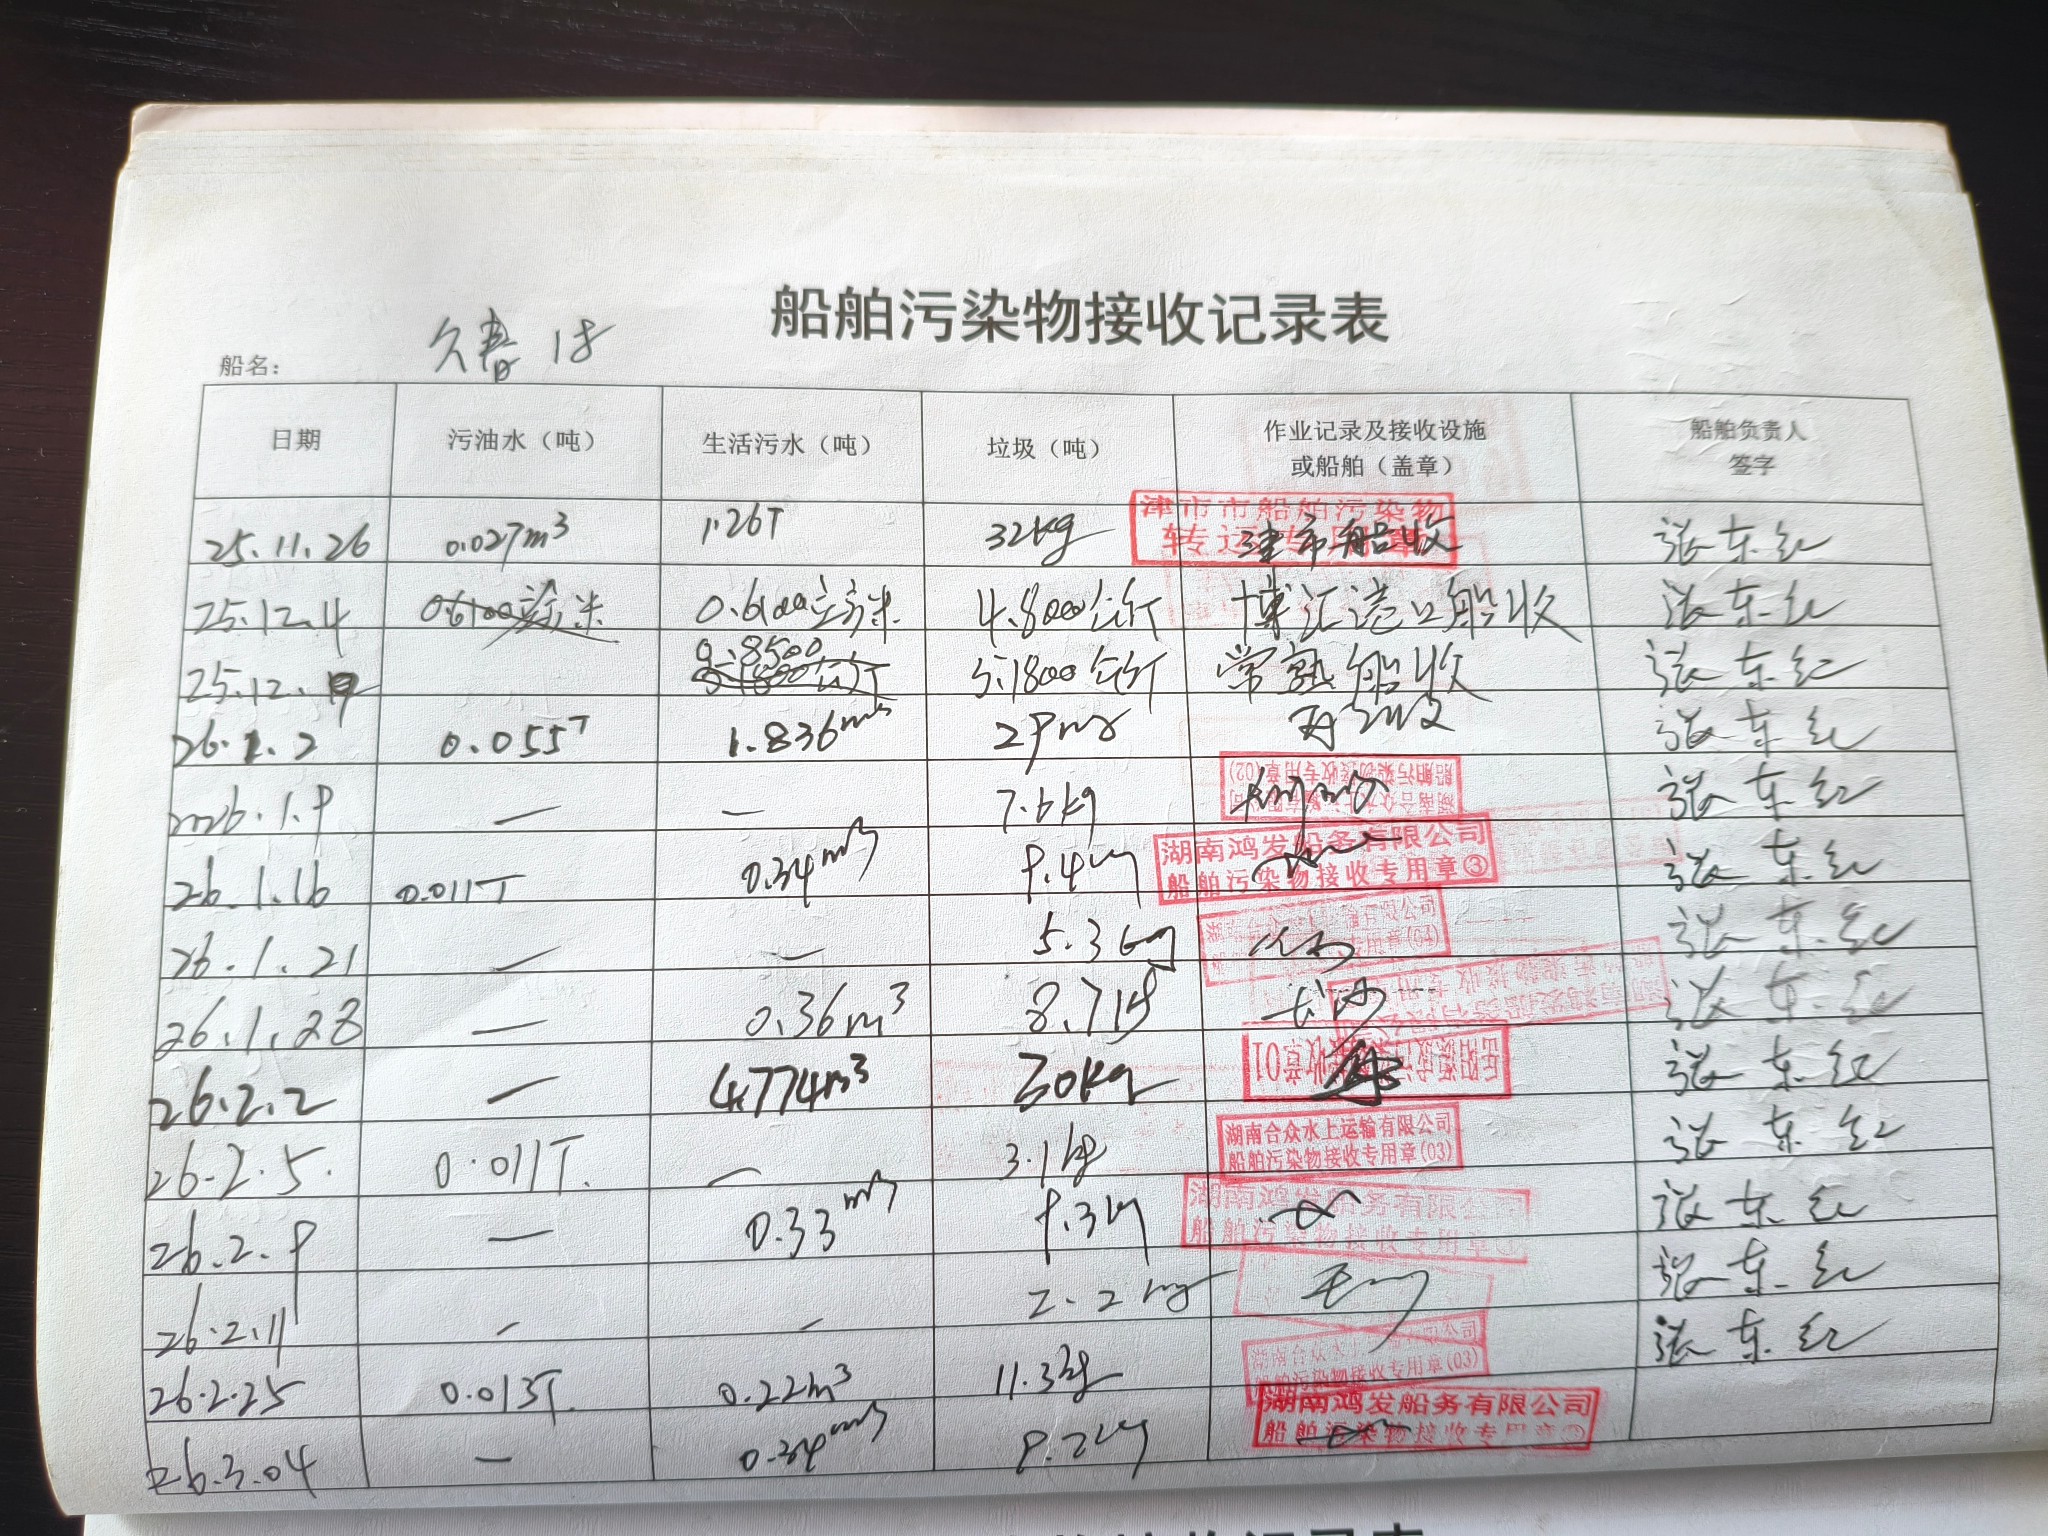 船舶污染物接收记录表
船名： 久春18
日期 污油水（吨） 生活污水（吨） 垃圾（吨） 作业记录及接收设施或船舶（盖章） 船舶负责人签字
25.11.26 0.027m³ 1.26T 32kg 津市市船舶污染物转运专用章 津市船收 张东红
25.12.4 0.6100立方米 0.6100立方米 4.800公斤 博汇港口船收 张东红
25.12.9 0.8500 5.1800公斤 5.1800公斤 常熟船收 张东红
26.1.2 0.055T 1.836m³ 29kg 张东红
2026.1.9 — — 7.6kg 船舶污染物接收专用章(02) 张东红
26.1.16 0.011T 0.34m³ 9.4kg 湖南鸿发船务有限公司 船舶污染物接收专用章③ 张东红
26.1.21 — — 5.3kg 专用章(04) 张东红
26.1.28 — 0.36m³ 8.7kg 长沙 张东红
26.2.2 — 4.774m³ 30kg 张东红
26.2.5. 0.011T. — 3.1kg 湖南合众水上运输有限公司 船舶污染物接收专用章(03) 张东红
26.2.9 — 0.33m³ 9.3kg 湖南鸿发船务有限公司 船舶污染物接收专用章 张东红
26.2.11 — — 2.2kg 张东红
26.2.25 0.013T. 0.22m³ 11.3kg 湖南合众水上 公司 船舶污染物接收专用章(03) 张东红
26.3.04 — 0.34m³ 9.2kg 湖南鸿发船务有限公司 船舶污染物接收专用章